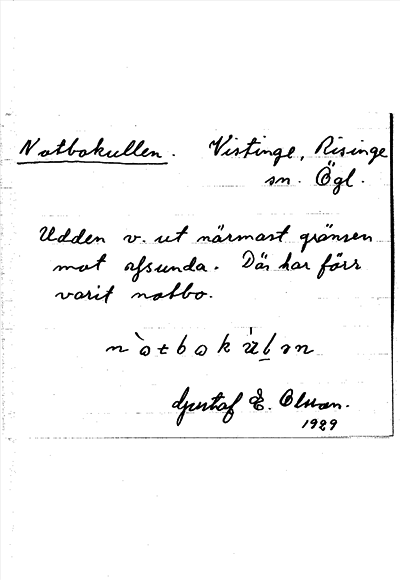 Notbokullen. Vistinge, Risinge
sn. Ögl.
Udden v. ut närmast gränsen
mot Afsunda. Där har förr
varit notbo.
Gustaf E. Olsson.
1929